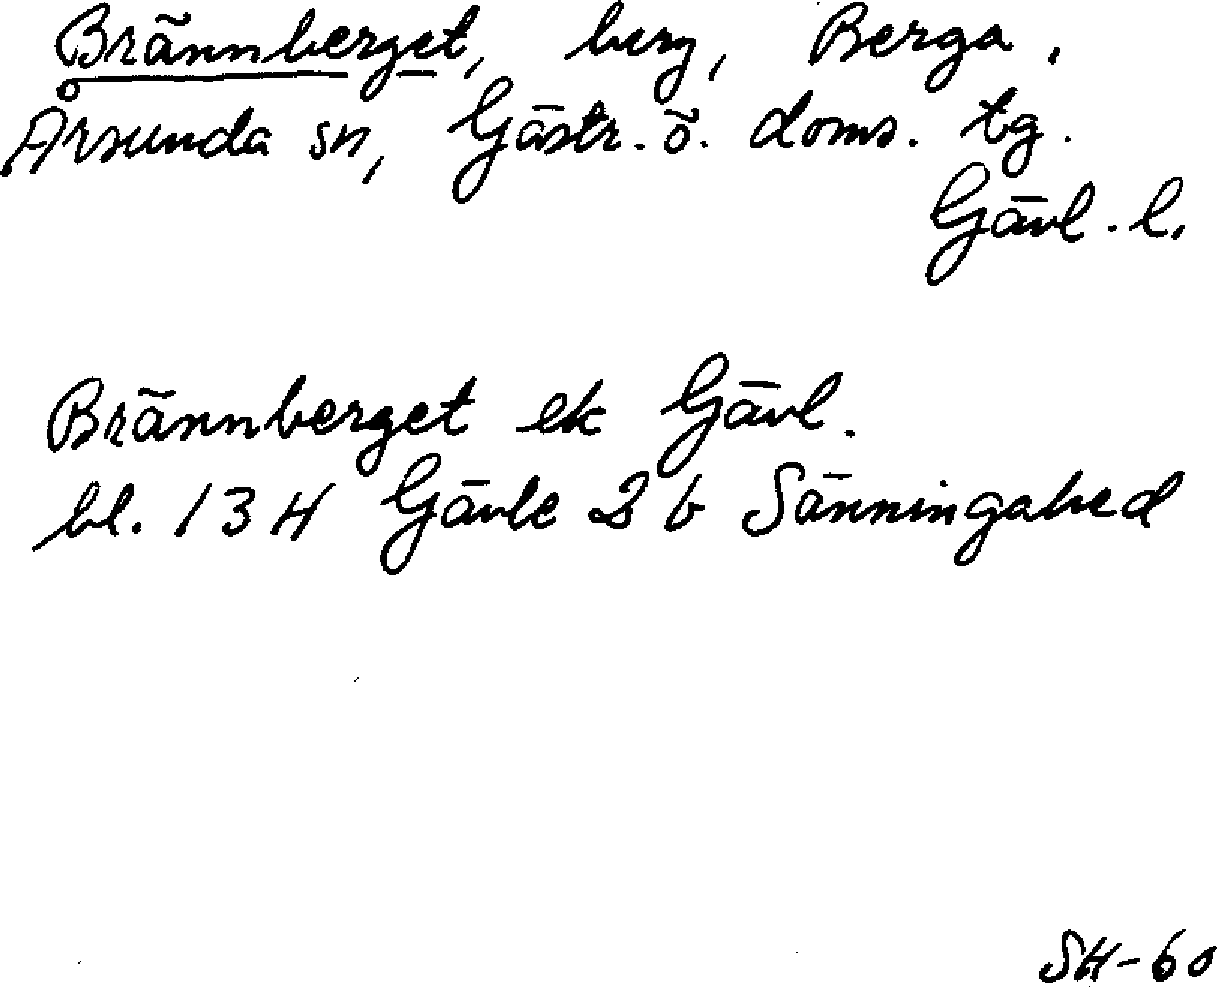 Brännberget, berg, Berga.
Årsunda sn, Gästr. ö. doms. tg.
Gävl. l.
Brännberget ek Gävl.
bl. 13 H Gävle 2 b Sänningahed
SH-60